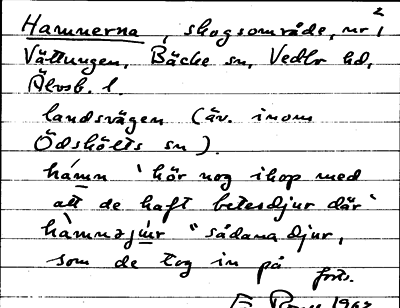 2
Hamnerna, skogsområde, nr 1
Vättungen, Bäcke sn, Vedbo hd,
Älvsb. l.
landsvägen (äv. inom
Ödskölts sn).
hámn 'hör nog ihop med
att de haft betesdjur där'
hàmnəjúr "sådana djur,
som de tog in på
forts.
1962